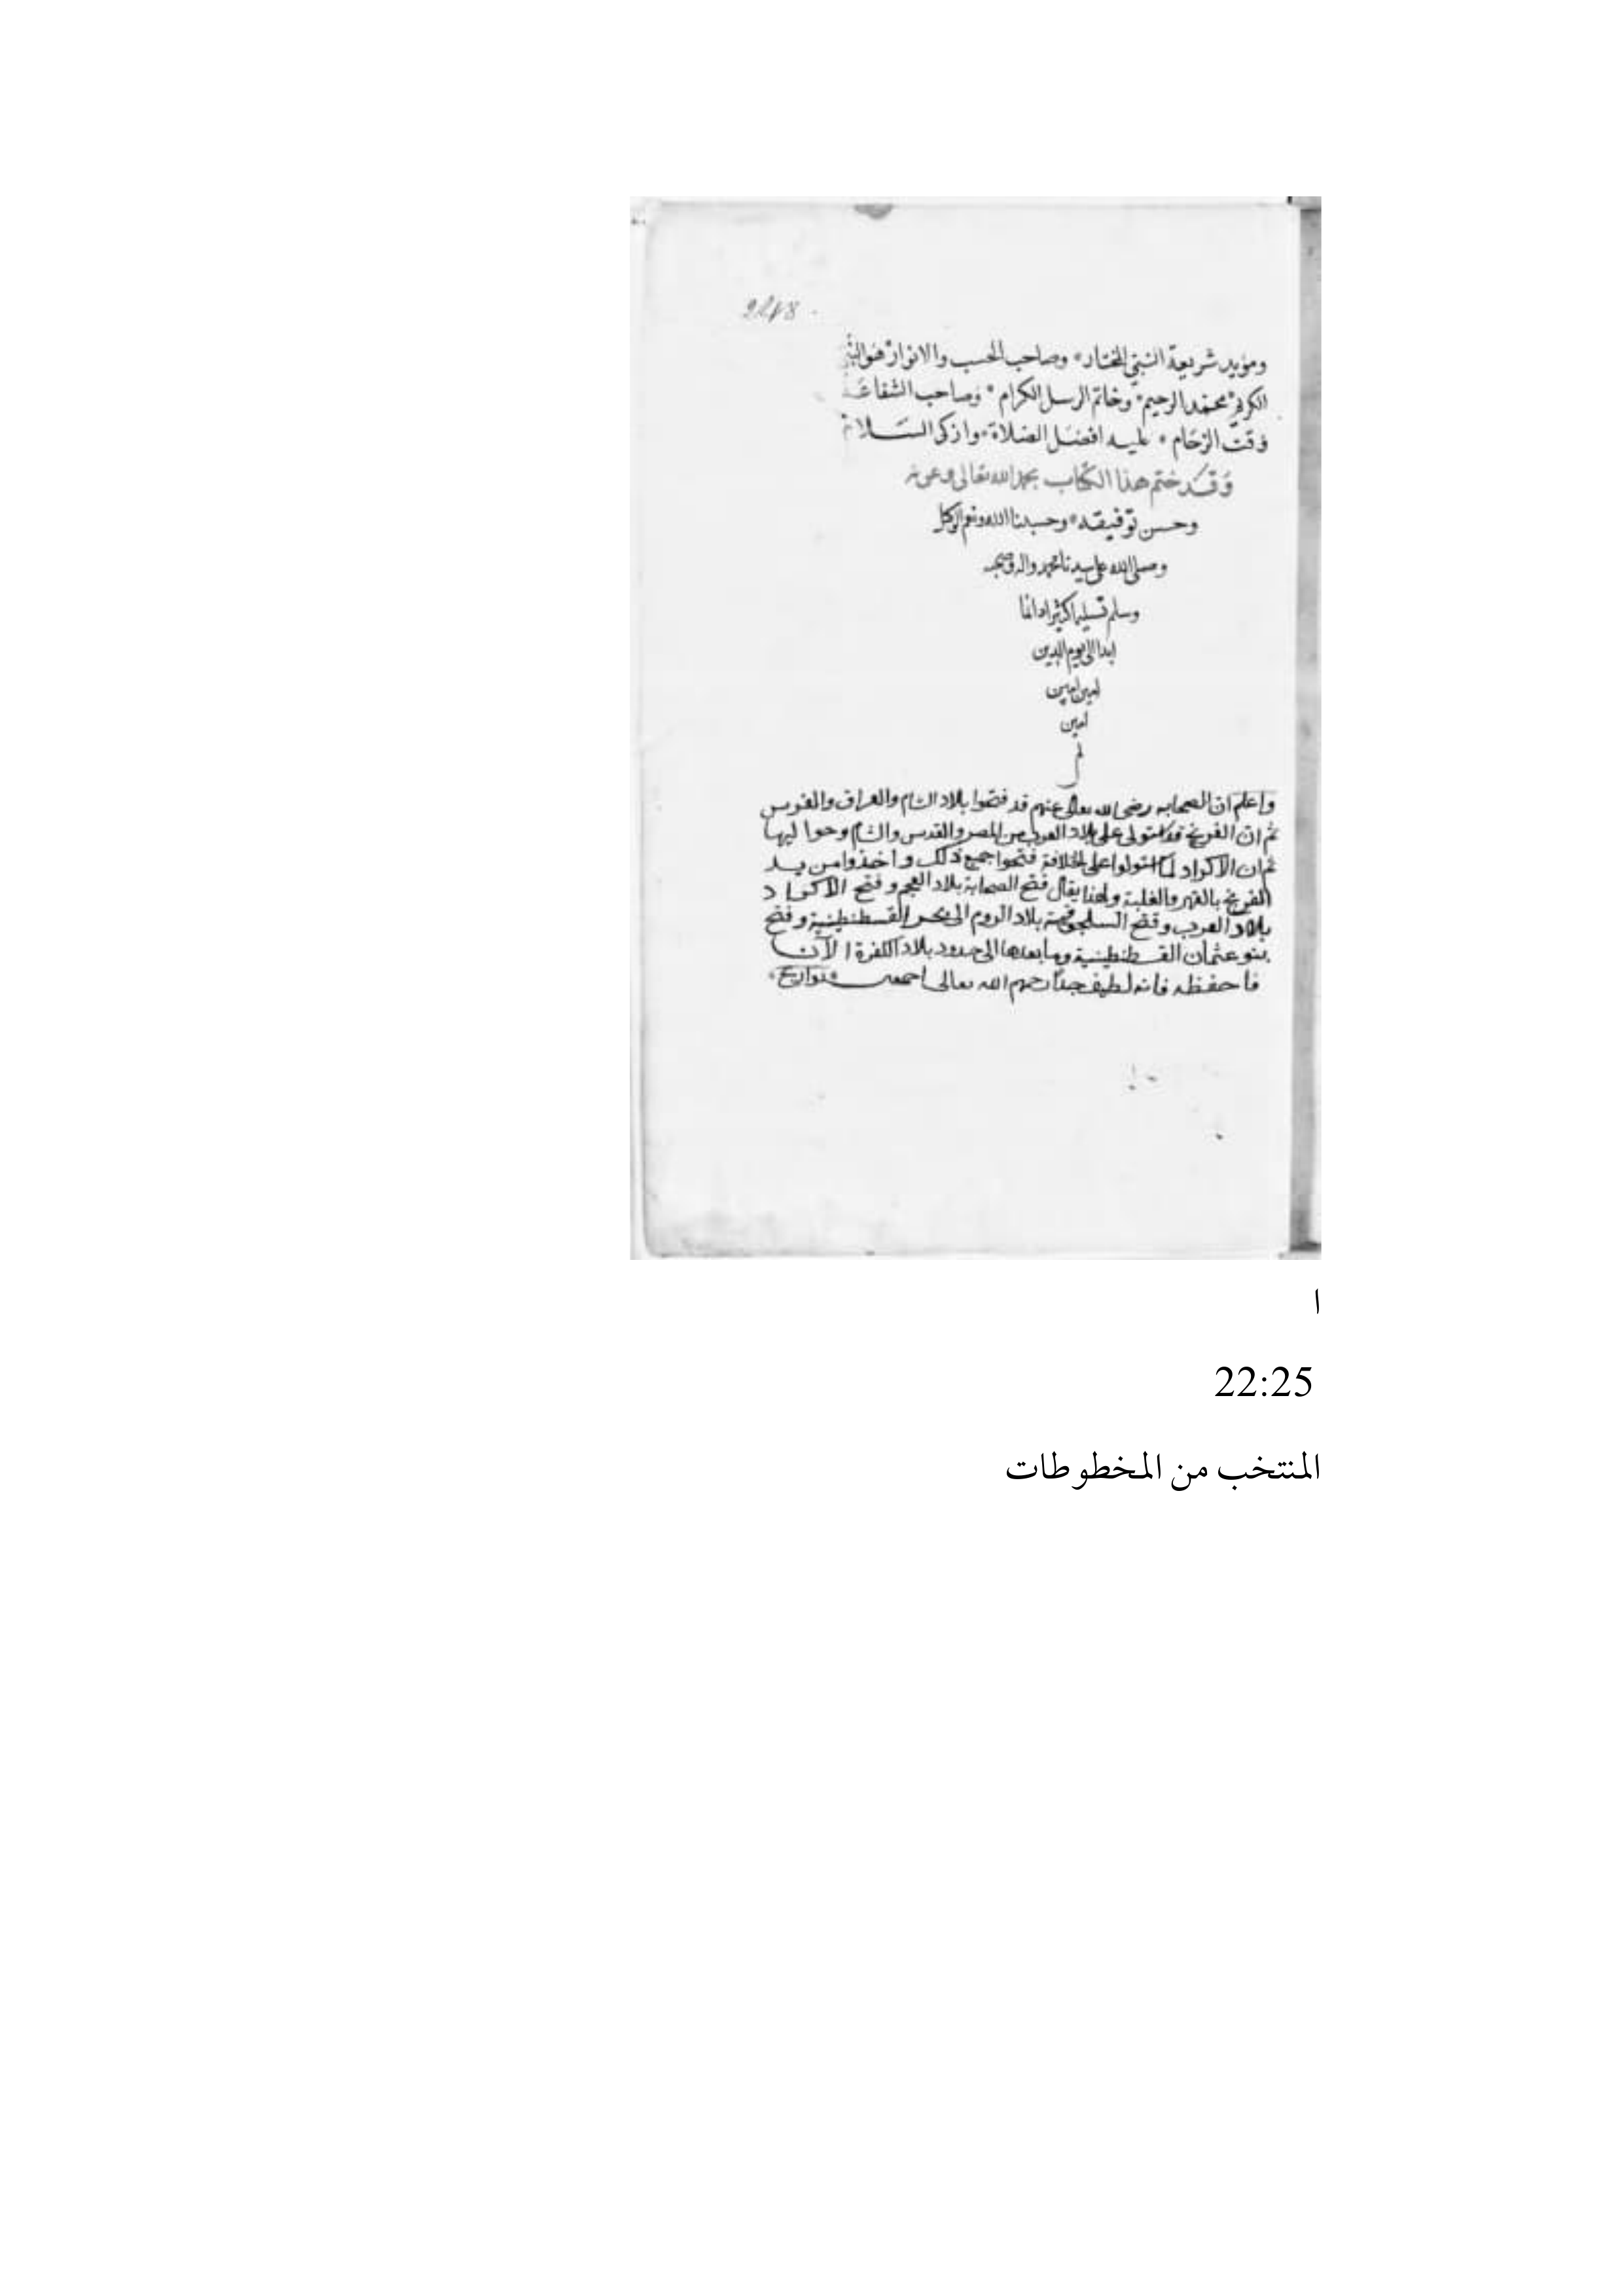 2248
ومؤيد شريعة النبي المختار وصاحب الحسب والانوار هو النبي
الكريم محمد الرحيم وخاتم الرسل الكرام وصاحب الشفاعة
وقت الزحام عليه افضل الصلاة وازكى السلام
وقد ختم هذا الكتاب بحمد الله تعالى وعونه
وحسن توفيقه وحسبنا الله ونعم الوكيل
وصلى الله على سيدنا محمد واله وصحبه
وسلم تسليما كثيرا دائما
ابدا الى يوم الدين
امين امين
امين
تم
واعلم ان الصحابه رضى الله تعالى عنهم قد فتحوا بلاد الشام والعراق والفرس
ثم ان الفرنج قد استولى على بلاد العرب من المصر والقدس والشام وحواليها
ثم ان الاكراد لما استولوا على الخلافة فتحوا جميع ذلك واخذوا من يد
الفرنج بالقهر والغلبة ولهذا يقال فتح الصحابة بلاد العجم وفتح الاكراد
بلاد العرب وفتح السلجوقية بلاد الروم الى بحر القسطنطينية وفتح
بنو عثمان القسطنطينية وما بعدها الى حدود بلاد الكفرة الآن
فاحفظه فانه لطيف جدا رحمهم الله تعالى اجمعين تواريخ
ا
22:25
المنتخب من المخطوطات